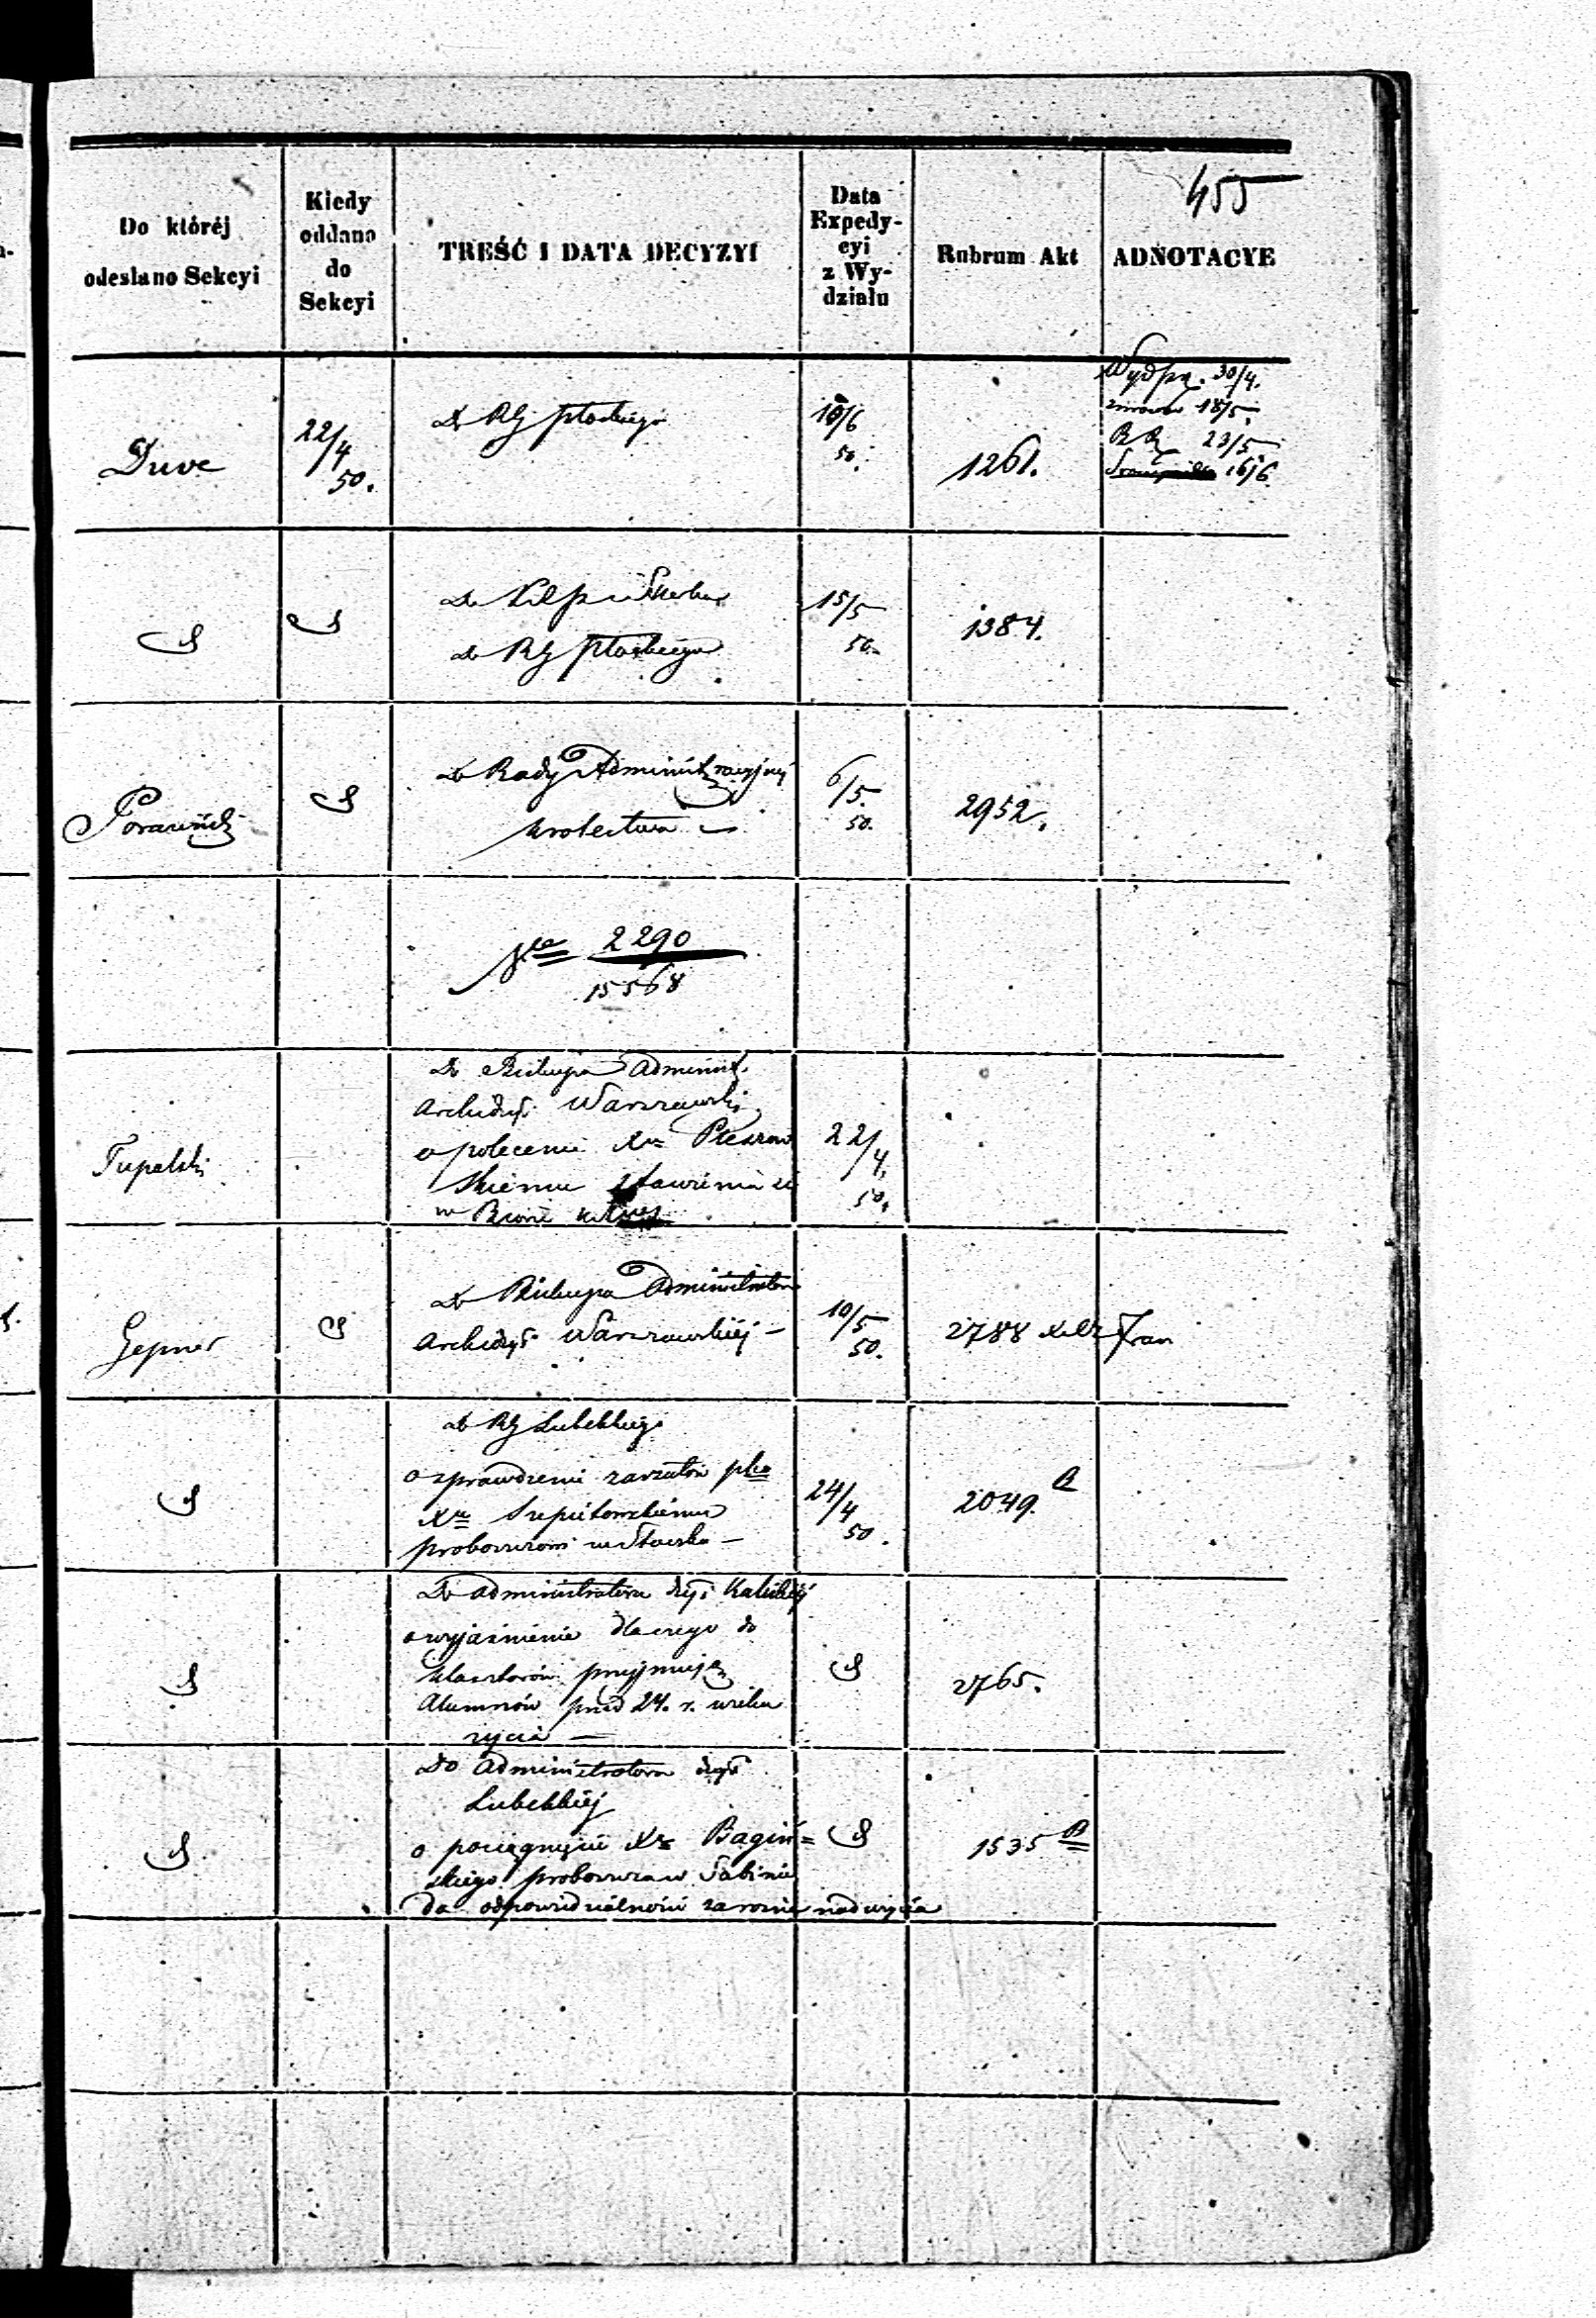 455
Do któréj
odesłano Sekcyi
Kiedy
oddano
do
Sekcyi
TREŚĆ I DATA DECYZYI
Data
Expedy-
cyi
z Wy-
działu
Rubrum Akt
ADNOTACYE
Duve
22/4
50.
Do RG Płockiego
10/6
50.
1261.
30/4.
18/5
23/5
16/6
Do
Do RG Płockiego
15/5
50.
1384.
Do Rady Administracyjnej
6/5.
50.
2952.
2290
15568
Tupalski
Do Biskupa Administ.
Archidyε. Warszawskiej
o polecenie Xu
skiemu stawienia się
w
22/4.
50.
Gepner
Do Biskupa Administratora
Archidyε. Warszawskiéj –
10/5
50.
2788
Do RG Lubelskiego
o sprawdzenie zarzutów pko
Xu
proboszczowi w
24/4
50.
2049. R
Do Administratora dyε. Kaliskiéj
o wyjaśnienie dlaczego do
klasztorów przyjmują
Alumnów przed 24. r. wieku
życia —
2765.
Do Administratora dyε.
Lubelskiéj
o pociągnięcie Xa Bagiń=
skiego proboszcza w Sabinie
do odpowiedzialności za różne nadużycia
1535 B